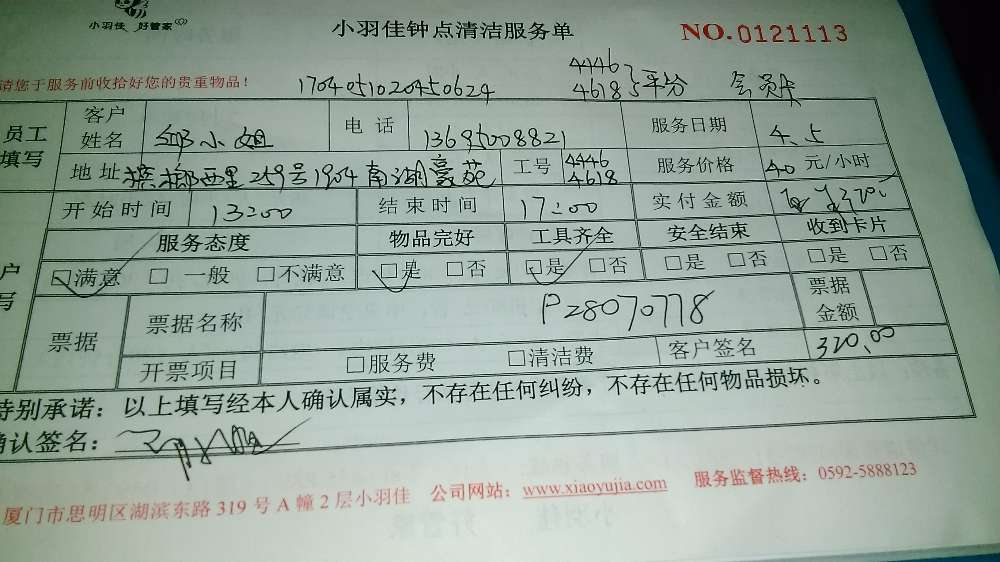 小羽佳 好管家
小羽佳钟点清洁服务单
NO.0121113
请您于服务前收拾好您的贵重物品！
1704051020450624
4446
4618 平分
会员卡
员工
填写
客户
姓名
邱小姐
电话
13695008821
服务日期
4.5
地址
槟榔西里259号1904南湖豪苑
工号
4446
4618
服务价格
40元/小时
开始时间
13:00
结束时间
17:00
实付金额
户
写
服务态度
物品完好
工具齐全
安全结束
收到卡片
□满意 □一般 □不满意
□是 □否
□是 □否
□是 □否
□是 □否
票据
票据名称
PZ8070778
票据
金额
开票项目
□服务费 □清洁费
客户签名
320.00
特别承诺：以上填写经本人确认属实，不存在任何纠纷，不存在任何物品损坏。
确认签名：
厦门市思明区湖滨东路319号A幢2层小羽佳 公司网站：www.xiaoyujia.com 服务监督热线：0592-5888123